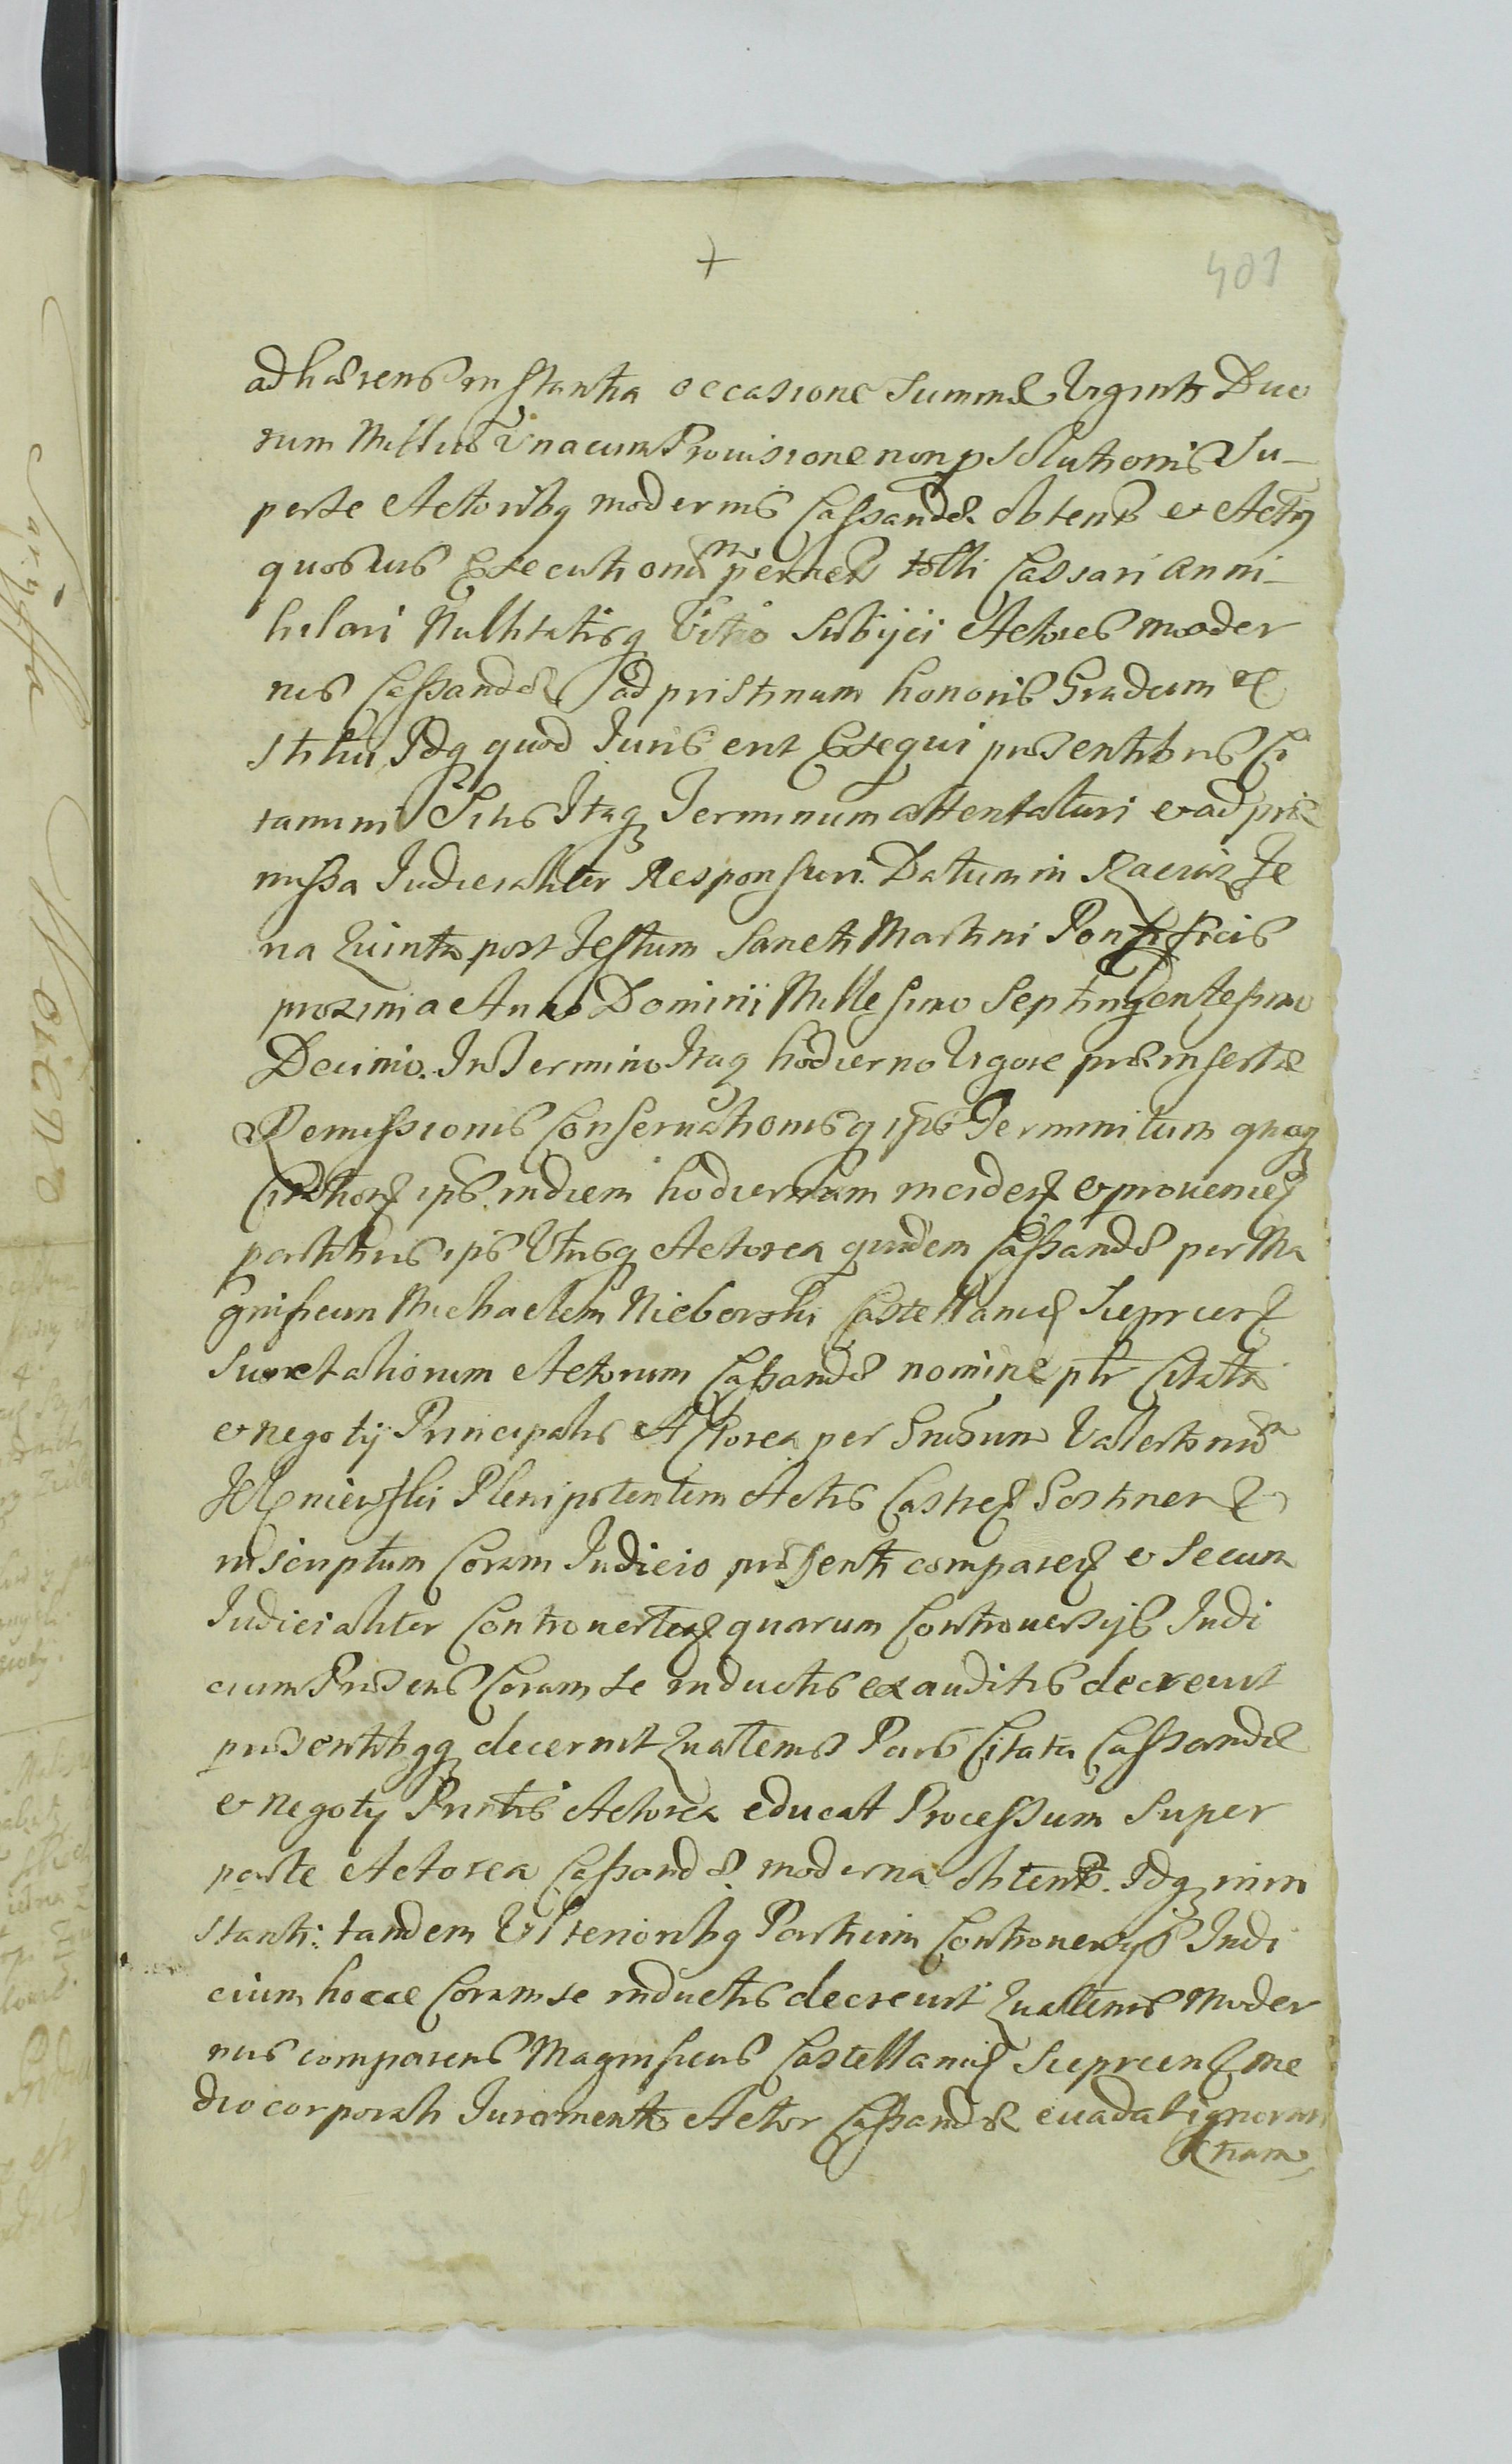 401
adhærens instantia occasione Summæ Viginti Duo
rum Millium Unacum Provisione non psolutionis Su-
perse Actoribq modernis Cassandæ obtent et Actus
quosvis Executionum perimen tolli Cassari Anni-
hilari Nullitatisq Vitio Subijci Actores moder
nos Cassandæ ad pristinum honoris Gradum re
stitui Idq quod Juris erit Exequi præsentibus Ci
tamini Sitis Itaq Terminum attentaturi et ad præ
missa Judicialiter Responsuri. Datum in Raciąz Fe
ria Quinta post Festum Sancti Martini Pontificis
proxima Anno Domini Millesimo Septingentesimo
Decimo. In Termino Itaq hodierno Vigore præinsertæ
Remissionis Conservationisq ipsi Termini tum quoq
Citationis ips. in diem hodiernam inciden et provenien
partibus ipis Utrisq Actorea quidem Cassandæ per Ma
gnificum Michaelem Nieborski Castellanu Sieprcen
Suo et aliorum Actorum Cassandæ nomine ptr Citata
et negotij Principalis Actorea per Gnosum Valentinum
Plenipotentem Actis Castren Gostinen
inscriptum Coram Judicio præsenti comparen et Secum
Judicialiter Controverten quarum Controversijs Judi
cium Præsens Coram se inductis exauditis decrevit
præsentibqq decernit Quatenus Pars Citata Cassandæ
et Negotij Prntis Actorea educat Processum Super
parte Actorea Cassandæ moderna obtent. Idq in in
stanti: tandem Ulterioribq Partium Controversijs Judi
cium hocce Coram se inductis decrevit Quatenus Moder
nus comparens Magnificus Castellanus Sieprcen me
dio corporali Juramento Actor Cassandæ evadat ignoran
tiam